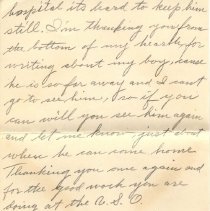 hospital its hard to keep him
still, I'm thanking you from
the bottom of my heart for
writing about my boy, cause
he is so far away and I cant
go to see him, & so if you
can will you see him again
and let me know just about
when he can come home
Thanking you once again and
for the good work you are
doing at the U.S.O.